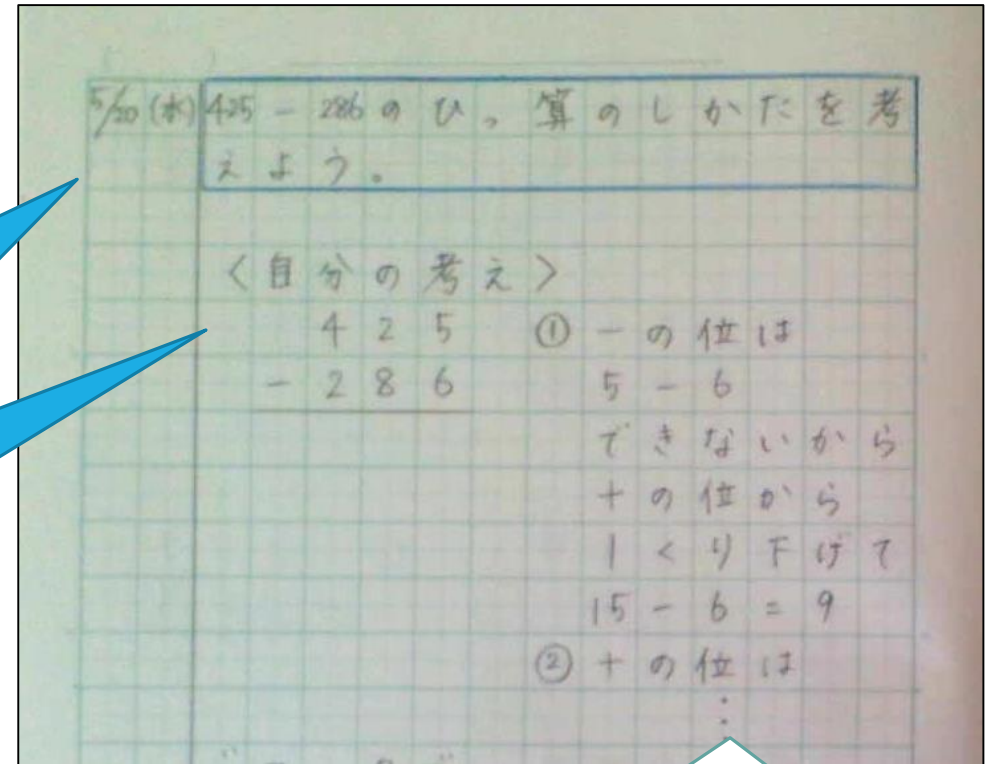 5/20(水) 425-286のひっ算のしかたを考
えよう。
〈自分の考え〉
425 ①一の位は
-286 5-6
できないから
十の位から
1くり下げて
15-6=9
②十の位は
⋮